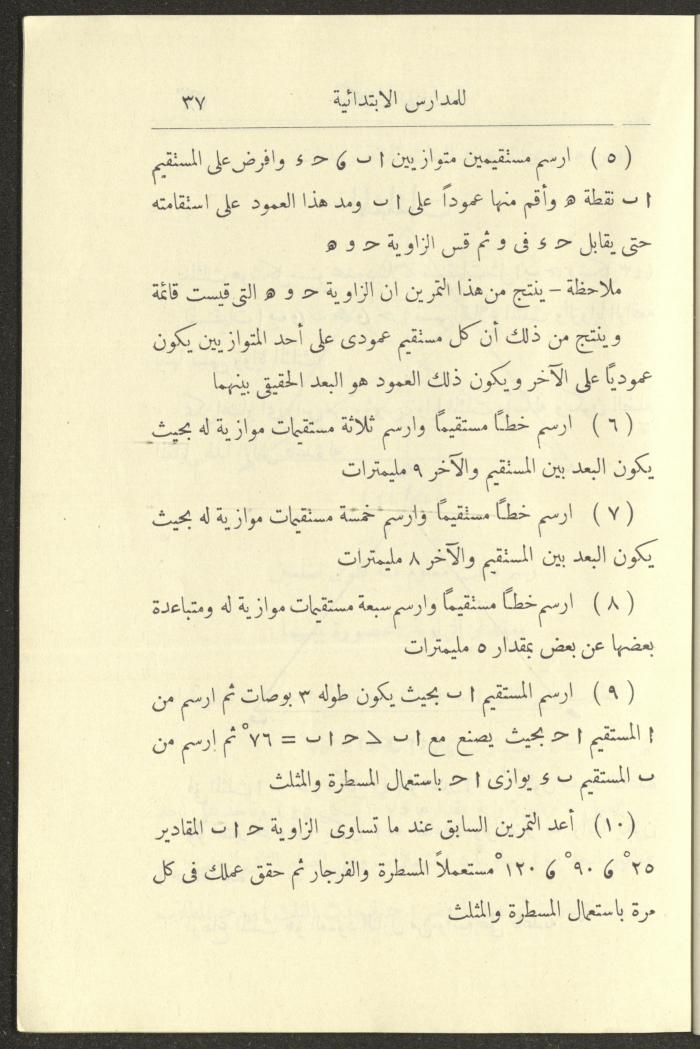 للمدارس الابتدائية ٣٧
(٥) ارسم مستقيمين متوازيين ا ب ﻭ ح ء وافرض على المستقيم
ا ب نقطة ه وأقم منها عموداً على ا ب ومد هذا العمود على استقامته
حتى يقابل ح ء فى و ثم قس الزاوية ح و ه
ملاحظة – ينتج من هذا التمرين ان الزاوية ح و ه التى قيست قائمة
وينتج من ذلك أن كل مستقيم عمودى على أحد المتوازيين يكون
عمودياً على الآخر ويكون ذلك العمود هو البعد الحقيقى بينهما
(٦) ارسم خطاً مستقيماً وارسم ثلاثة مستقيمات موازية له بحيث
يكون البعد بين المستقيم والآخر ٩ مليمترات
(٧) ارسم خطاً مستقيماً وارسم خمسة مستقيمات موازية له بحيث
يكون البعد بين المستقيم والآخر ٨ مليمترات
(٨) ارسم خطاً مستقيماً وارسم سبعة مستقيمات موازية له ومتباعدة
بعضها عن بعض بمقدار ٥ مليمترات
(٩) ارسم المستقيم ا ب بحيث يكون طوله ٣ بوصات ثم ارسم من
ا المستقيم ا ح بحيث يصنع مع ا ب > ح ا ب = ٧٦° ثم ارسم من
ب المستقيم ب ء يوازى ا ح باستعمال المسطرة والمثلث
(١٠) أعد التمرين السابق عند ما تساوى الزاوية ح ا ب المقادير
٢٥° ﻭ ٩٠° ﻭ ١٢٠° مستعملاً المسطرة والفرجار ثم حقق عملك فى كل
مرة باستعمال المسطرة والمثلث